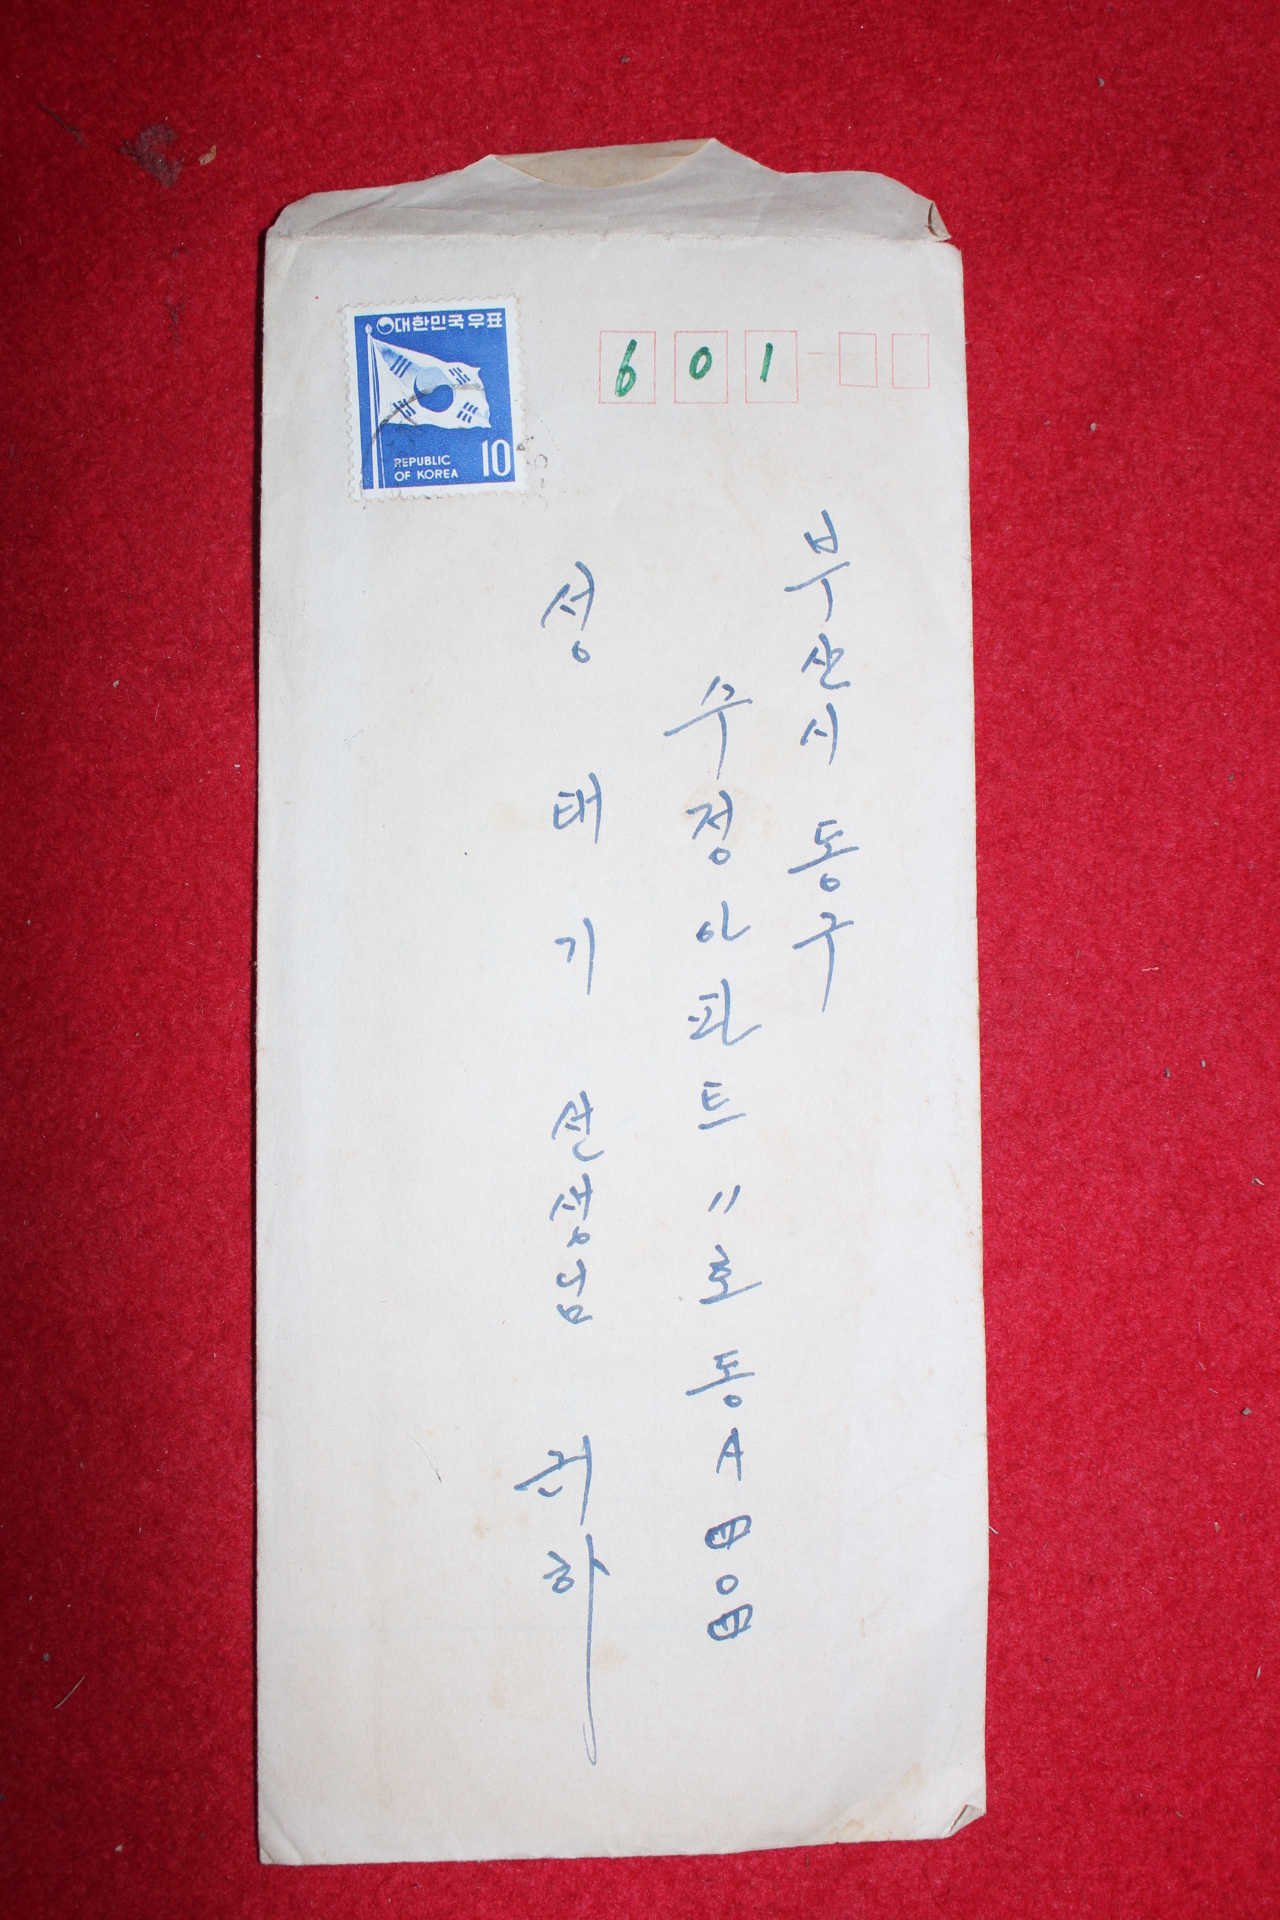 대한민국우표
REPUBLIC
OF KOREA
10
601
부산시 동구
수정아파트 11호동A
성태기 선생님 귀하